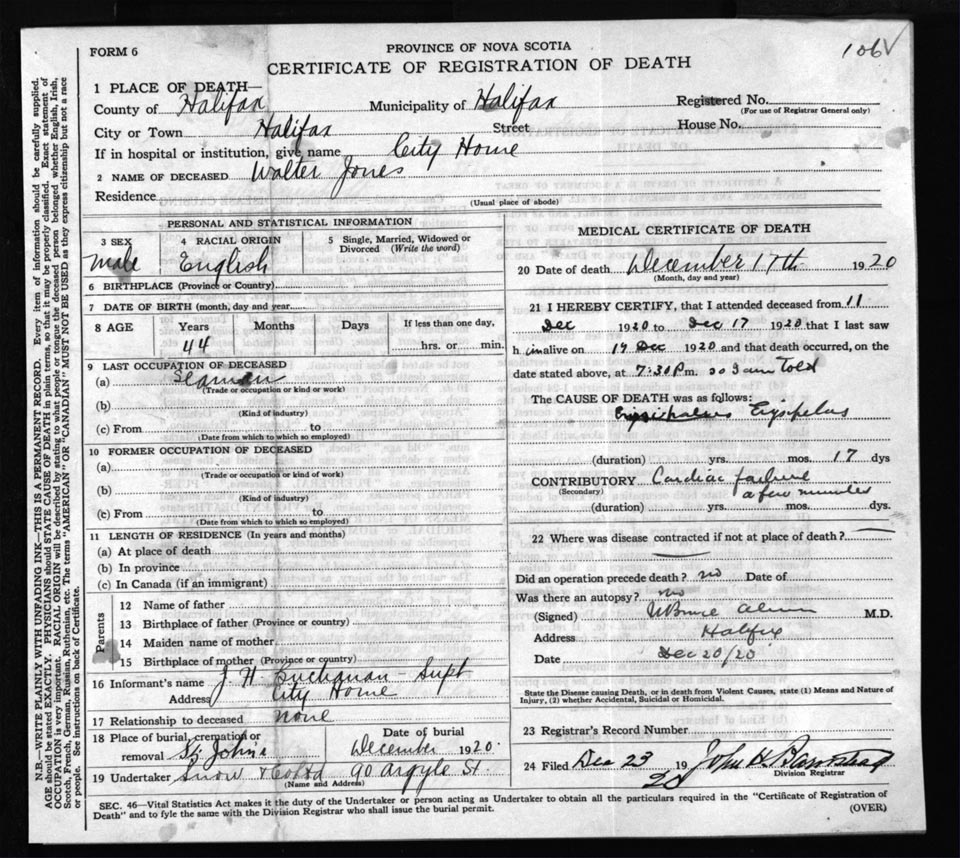 FORM 6
PROVINCE OF NOVA SCOTIA
CERTIFICATE OF REGISTRATION OF DEATH
106V
1 PLACE OF DEATH—
County of Halifax Municipality of Halifax Registered No.
(For use of Registrar General only)
City or Town Halifax Street House No.
If in hospital or institution, give name City Home
2 NAME OF DECEASED Walter Jones
Residence
(Usual place of abode)
PERSONAL AND STATISTICAL INFORMATION
3 SEX 4 RACIAL ORIGIN 5 Single, Married, Widowed or Divorced (Write the word)
Male English
6 BIRTHPLACE (Province or Country)
7 DATE OF BIRTH (month, day and year)
8 AGE Years Months Days If less than one day,
44 hrs. or min.
9 LAST OCCUPATION OF DECEASED
(a) Seaman
(Trade or occupation or kind or work)
(b)
(Kind of industry)
(c) From to
(Date from which to which so employed)
10 FORMER OCCUPATION OF DECEASED
(a)
(Trade or occupation or kind of work)
(b)
(Kind of industry)
(c) From to
(Date from which to which so employed)
11 LENGTH OF RESIDENCE (In years and months)
(a) At place of death
(b) In province
(c) In Canada (if an immigrant)
Parents
12 Name of father
13 Birthplace of father (Province or country)
14 Maiden name of mother
15 Birthplace of mother (Province or country)
16 Informant's name J H Buchanan Supt
Address City Home
17 Relationship to deceased none
18 Place of burial, cremation or removal Date of burial
St. John's December 1920.
19 Undertaker Snow & 90 Argyle St.
(Name and Address)
MEDICAL CERTIFICATE OF DEATH
20 Date of death December 17th 1920
(Month, day and year)
21 I HEREBY CERTIFY, that I attended deceased from 11
Dec 1920 to Dec 17 1920 that I last saw
h im alive on Dec 1920 and that death occurred, on the
date stated above, at 7:30 P.m. so I am Told
The CAUSE OF DEATH was as follows:
Erysipelas
(duration) yrs. mos. 17 dys
CONTRIBUTORY Cardiac failure
(Secondary) a few minutes
(duration) yrs. mos. dys.
22 Where was disease contracted if not at place of death?
Did an operation precede death? no Date of
Was there an autopsy? no
(Signed) M.D.
Address Halifax
Date Dec 20/20
State the Disease causing Death, or in death from Violent Causes, state (1) Means and Nature of
Injury, (2) whether Accidental, Suicidal or Homicidal.
23 Registrar's Record Number
24 Filed Dec 23 19 20 John
Division Registrar
SEC. 46—Vital Statistics Act makes it the duty of the Undertaker or person acting as Undertaker to obtain all the particulars required in the "Certificate of Registration of
Death" and to fyle the same with the Division Registrar who shall issue the burial permit.
(OVER)
N.B.—WRITE PLAINLY WITH UNFADING INK—THIS IS A PERMANENT RECORD. Every item of information should be carefully supplied.
AGE should be stated EXACTLY. PHYSICIANS should STATE CAUSE OF DEATH in plain terms, so that it may be properly classified. Exact statement of
OCCUPATION is very important. RACIAL ORIGIN will be described by stating to what people or tongue the deceased person belonged whether English, Irish,
Scotch, French, German, Russian, Ruthenian, etc. The terms "AMERICAN" OR "CANADIAN" MUST NOT BE USED as they express citizenship but not a race
or people. See instructions on back of Certificate.